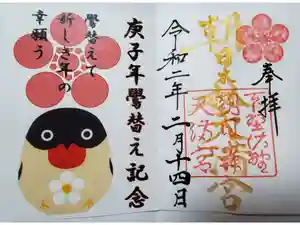 奉拝
朝日森天満宮
天満宮
令和二年二月十四日
庚子年鷽替え記念
鷽替えて
新しき年の
幸願う